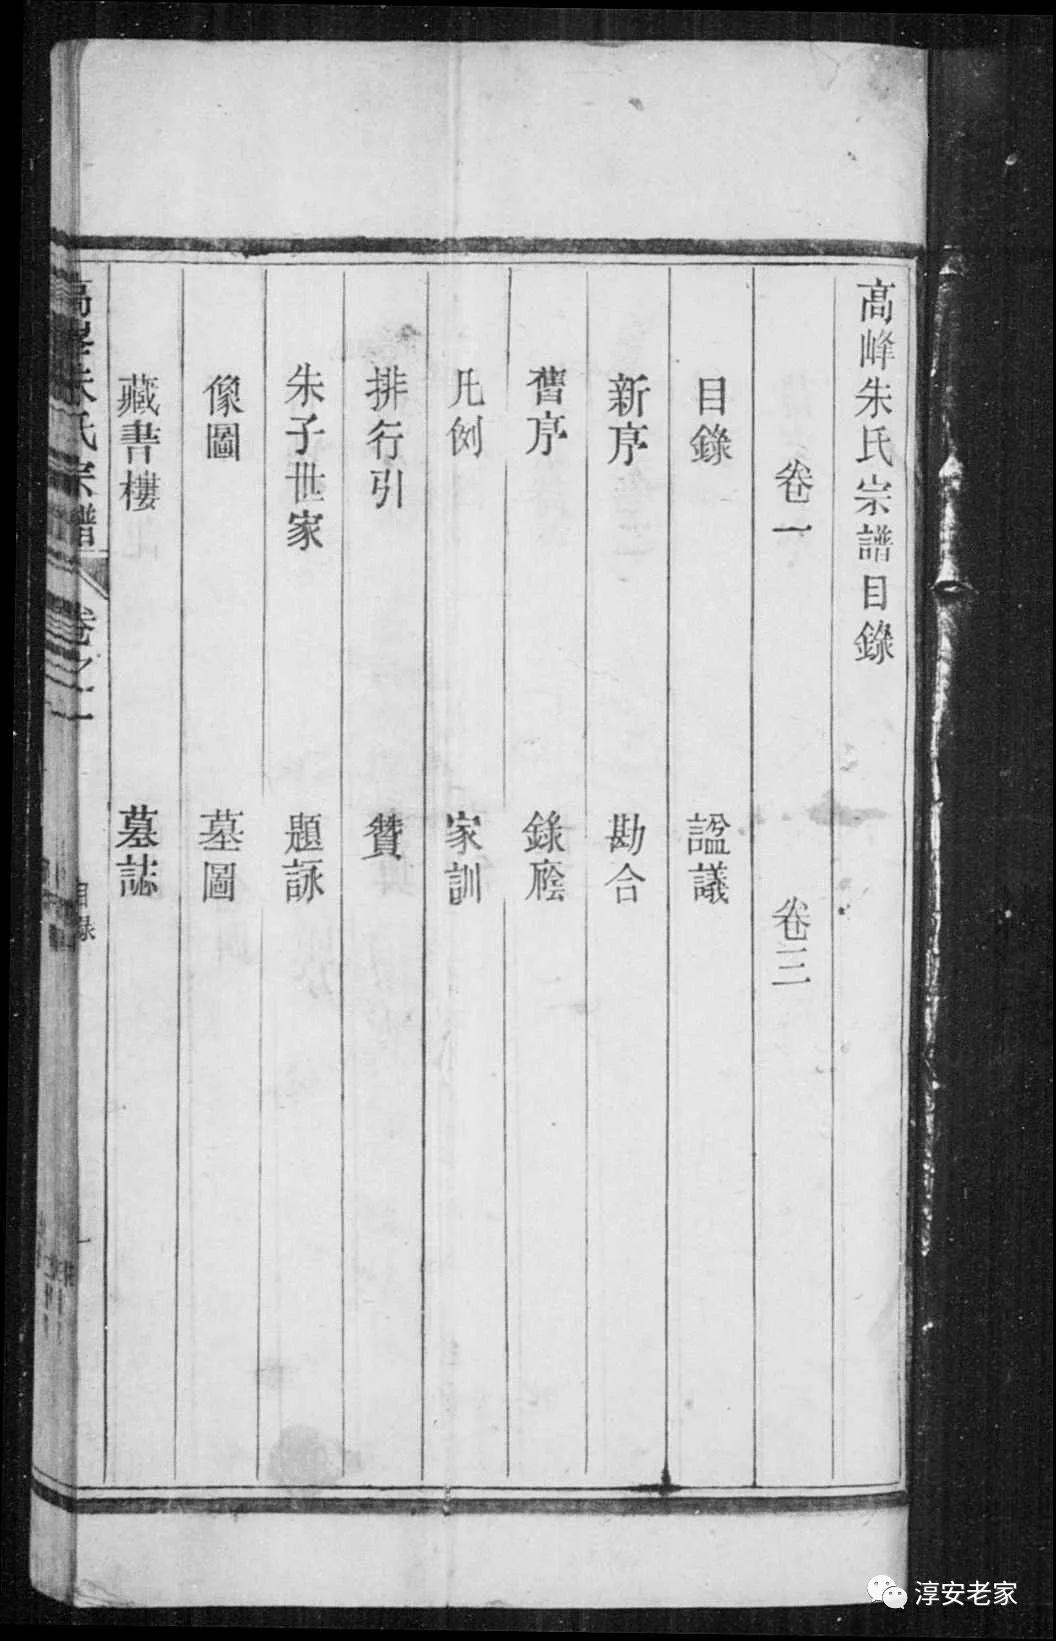 高峰朱氏宗譜目錄
卷一　卷三
目錄　諡議
新序　勘合
舊序　錄廕
凡例　家訓
排行引　贊
朱子世家　題詠
像圖　墓圖
藏書樓　墓誌
高峯朱氏宗譜　卷之一　目錄　一
淳安老家